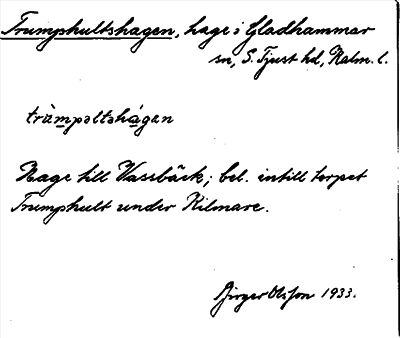 Trumphultshagen, hage i Gladhammar
sn, S. Tjust hd, Kalm. l.
trùmpəltshágen
Hage till Vassbäck; bel. intill torpet
Trumphult under Kilmare.
Birger Olsson 1933.